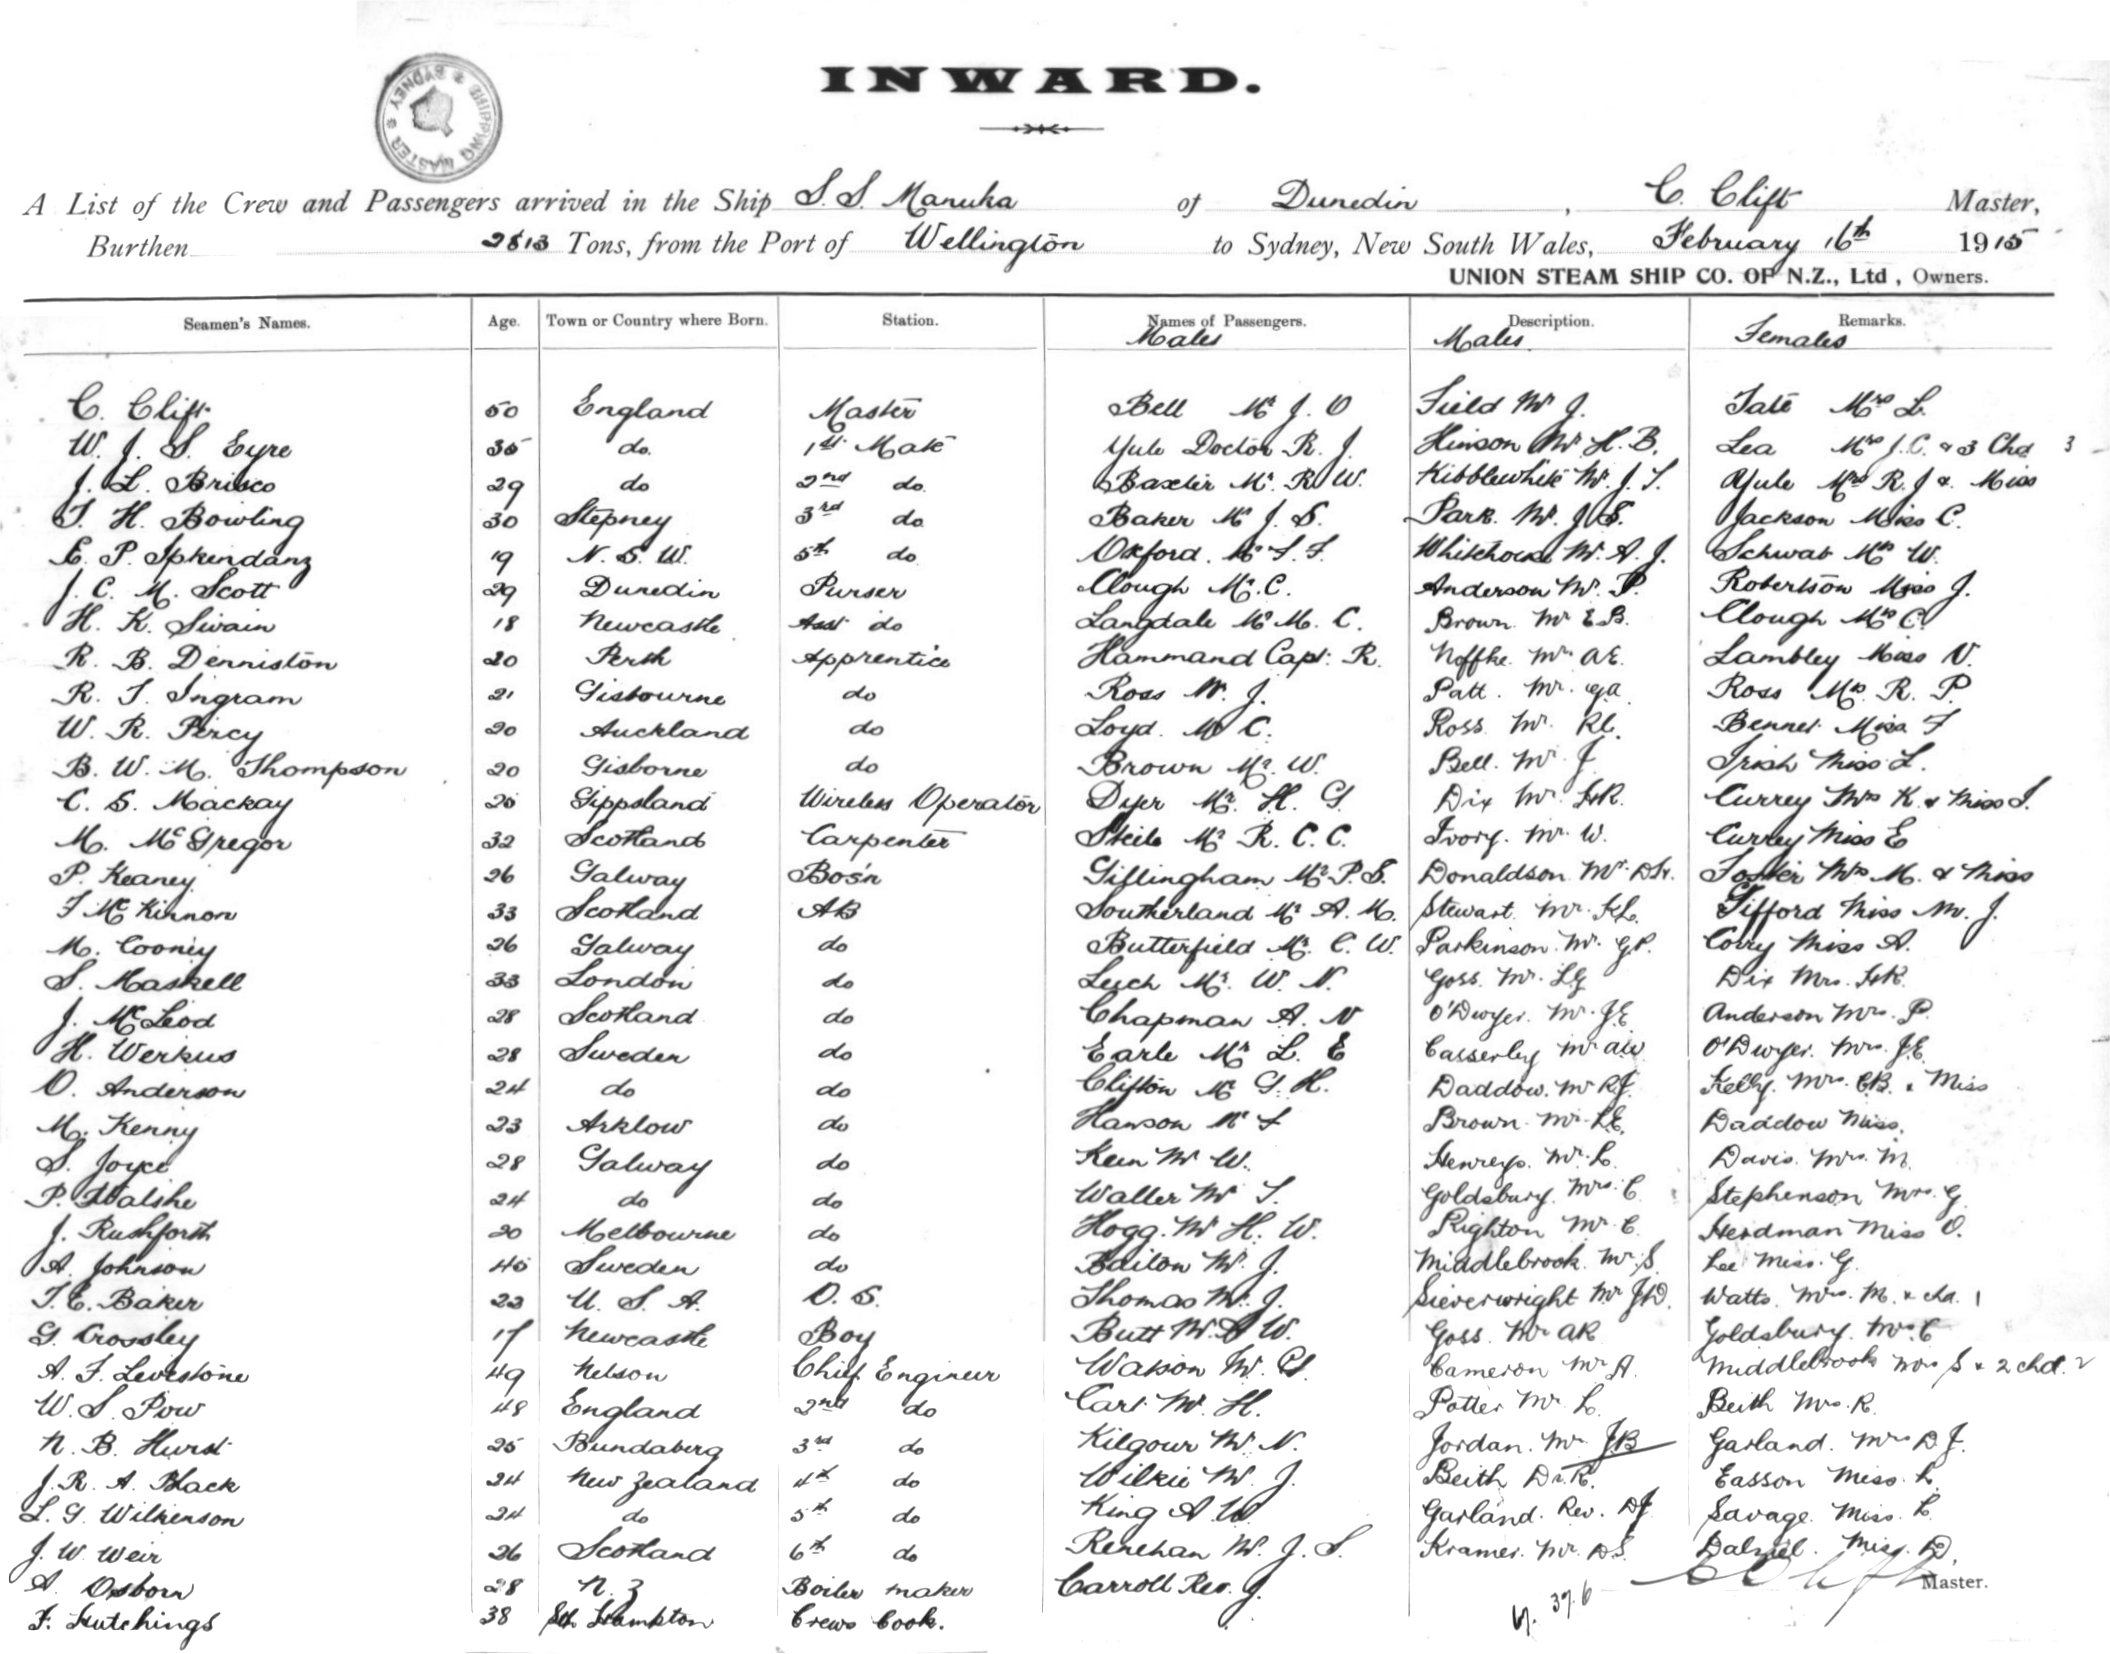 INWARD.
SHIPPING MASTER * SYDNEY *
A List of the Crew and Passengers arrived in the Ship S.S. Manuka of Dunedin, C. Clift Master,
Burthen 2813 Tons, from the Port of Wellington to Sydney, New South Wales, February 16th 1915
UNION STEAM SHIP CO. OF N.Z., Ltd, Owners.
Seamen's Names. Age. Town or Country where Born. Station. Names of Passengers. Description. Remarks.
Males Males Females
C. Clift 50 England Master Bell Mr J. O Field Mr J. Tate Mrs L.
W. J. S. Eyre 35 do. 1st Mate Yule Doctor R. J. Hinson Mr H. B. Lea Mrs J. C. & 3 Chd 3
J. L. Brisco 29 do 2nd do. Baxter Mr. R. W. Kibblewhite Mr. J. T. Yule Mrs R. J. & Miss
T. H. Bowling 30 Stepney 3rd do Baker Mr J. S. Park. Mr. J. S. Jackson Miss C.
E. P. Ipkendanz 19 N. S. W. 5th do Oxford. Mr T. F. Mr. A. J. Schwab Mrs W.
J. C. M. Scott 29 Dunedin Purser Clough Mr. C. Anderson Mr. P. Robertson Miss J.
H. K. Swain 18 Newcastle Asst do Langdale Mr M. C. Brown Mr E. B. Clough Mrs C.
R. B. Denniston 20 Perth Apprentice Hammand Capt. R. Noffke. Mr. A. E. Lambley Miss V.
R. T. Ingram 21 Gisbourne do Ross Mr. J. Patt. Mr. G A Ross Mrs. R. P.
W. R. Percy 20 Auckland do Loyd. Mr C. Ross Mr. Bennet Miss F
B. W. M. Thompson 20 Gisborne do Brown Mr. W. Bell. Mr J. Irish Miss L.
C. S. Mackay 25 Gippsland Wireless Operator Dyer Mr. H. G. Dix Mr. Currey Mrs K. & Miss I.
M. McGregor 32 Scotland Carpenter Mr. R. C. C. Ivory. Mr. W. Currey Miss E
P. Keaney 26 Galway Bos'n Gillingham Mr. P. S. Donaldson Mr. Foster Mrs M. & Miss
F McKinnon 33 Scotland AB Southerland Mr A. M. Stewart. Mr. Gifford Miss M. J.
M. Cooney 26 Galway do Butterfield Mr. C. W. Parkinson. Mr. G. P. Corry Miss A.
S. Maskell 33 London do Leech Mr. W. N. Goss. Mr. L G Dix Mrs.
J. McLeod 28 Scotland do Chapman A. N O'Dwyer. Mr. J E Anderson Mrs. P.
H. Werkus 28 Sweden do Earle Mr L. E Casserley Mr A W O'Dwyer. Mrs. J. E.
O. Anderson 24 do do Clifton Mr G. H. Daddow. Mr R J. Kelly. Mrs. C. B. & Miss
M. Kenny 23 Arklow do Hawson Mr F Brown. Mr. L E. Daddow Miss.
S. Joyce 28 Galway do Keen Mr W. Henrys. Mr. L. Davis Mrs. M.
P. Walshe 24 do do Waller Mr T. Goldsbury. Mrs. C. Stephenson Mrs. G.
J. Rushforth 20 Melbourne do Hogg. Mr H. W. Righton Mr C. Herdman Miss O.
A. Johnson 45 Sweden do Bailon Mr. J. Middlebrook. Mr. S. Lee Miss. G.
T. E. Baker 22 U. S. A. O. S. Thomas Mr. J. Sieverwright Mr J D. Watts. Mrs. M. & chd. 1
G. Crossley 17 Newcastle Boy Butt Mr. W. Goss. Mr A R Goldsbury. Mrs. C
A. F. Levestone 49 Nelson Chief Engineer Watson Mr. G. Cameron Mr A. Middlebrook Mrs S & 2 chd. 2
W. S. Pow 48 England 2nd do Carr Mr. H. Potter Mr L. Beith Mrs. R.
N. B. Hurst 25 Bundaberg 3rd do Kilgour Mr. N. Jordan. Mr J B Garland. Mrs D J.
J. R. A. Black 24 New Zealand 4th do Wilkie Mr. J. Beith Dr. R. Easson Miss. L.
L. G. Wilkenson 24 do 5th do King A. W. Garland. Rev. D J Savage. Miss. L.
J. W. Weir 26 Scotland 6th do Renehan Mr. J. S. Kramer. Mr. D S. Dalziel. Miss. D.
A. Osborn 28 N. Z Boiler maker Carroll Rev. J. C Clift Master.
F. Hutchings 38 Sth Hampton Crews Cook. 37. 6